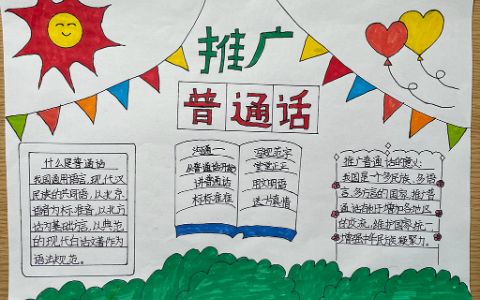 推广
普通话
什么是普通话
我国通用语言,现代汉
民族的共同语,以北京
语音为标准音,以北方
话为基础方言,以典范
的现代白话文著作为
语法规范。
沟通一
从普通话开始
讲普通话
标标准准
写规范字
堂堂正正
用文明语
送一片真情
推广普通话的意义:
我国是个多民族,多语
言,多方言的国家,推广普
通话有利于增加各地区
的交流,维护国家统一
增强中华民族凝聚力。